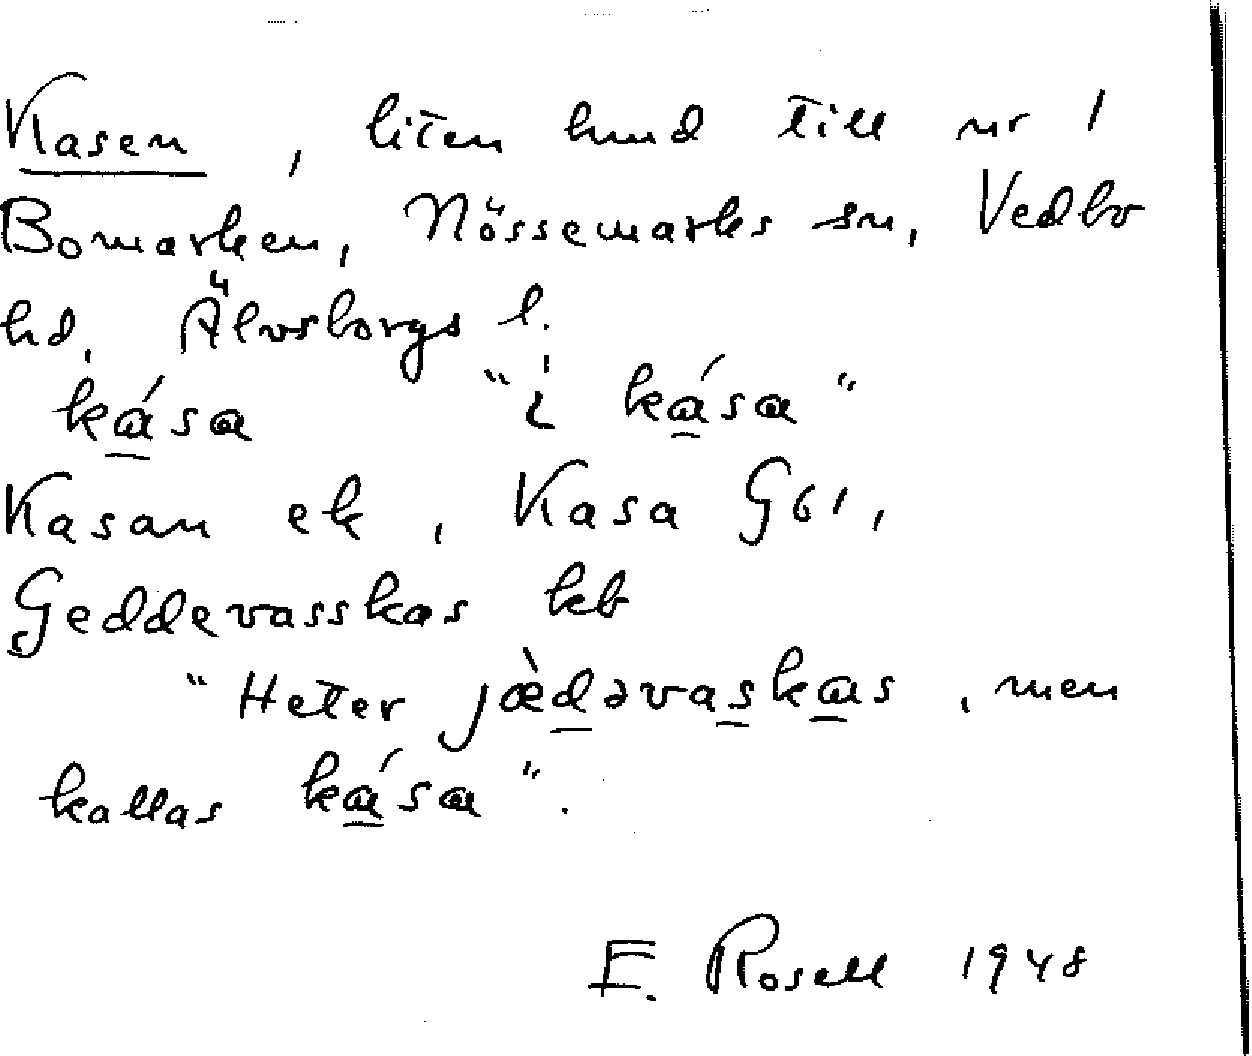 Kasen, liten hmd till nr 1
Bomarken, Nössemarks sn, Vedbo
hd, Älvsborgs l.
ká̱sa "i ká̱sa"
Kasan ek, Kasa G61,
Geddevasskas kb
"Heter jæ̀ḏəvas̱ka̱s, men
kallas ká̱sa".
E. Rosell 1948